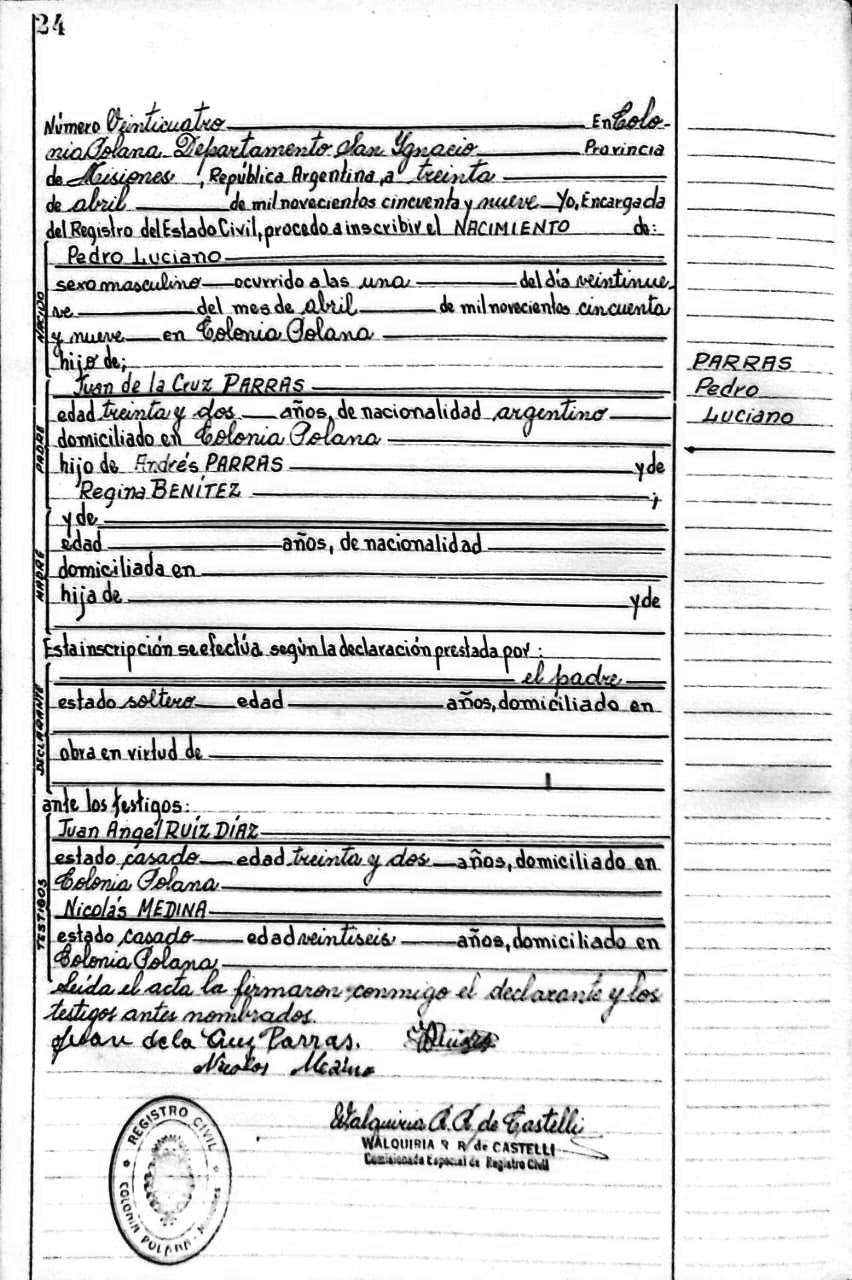 24
Número Veinticuatro En Colo-
nia Polana Departamento San Ygnacio Provincia
de Misiones, República Argentina, a treinta
de abril de mil novecientos cincuenta y nueve Yo, Encargada
del Registro del Estado Civil, procedo a inscribir el NACIMIENTO de:
NACIDO
Pedro Luciano
sexo masculino ocurrido a las una del día veintinue
ve del mes de abril de mil novecientos cincuenta
y nueve en Colonia Polana
hijo de;
PADRE
Juan de la Cruz PARRAS
edad treinta y dos años, de nacionalidad argentino
domiciliado en Colonia Polana
hijo de Andrés PARRAS y de
Regina BENÍTEZ ;
MADRE
y de
edad años, de nacionalidad
domiciliada en
hija de y de
Esta inscripción se efectúa según la declaración prestada por:
DECLARANTE
el padre
estado soltero edad años, domiciliado en
obra en virtud de
ante los testigos:
TESTIGOS
Juan Angel RUÍZ DÍAZ
estado casado edad treinta y dos años, domiciliado en
Colonia Polana
Nicolás MEDINA
estado casado edad veintiseis años, domiciliado en
Colonia Polana
Leída el acta la firmaron conmigo el declarante y los
testigos antes nombrados.
Juan de la Cruz Parras.
Nicolos Medina
Walquiria R. R. de Castelli
WALQUIRIA R R de CASTELLI
Comisionada Especial de Registro Civil
REGISTRO CIVIL
COLONIA POLANA - Misiones
PARRAS
Pedro
Luciano